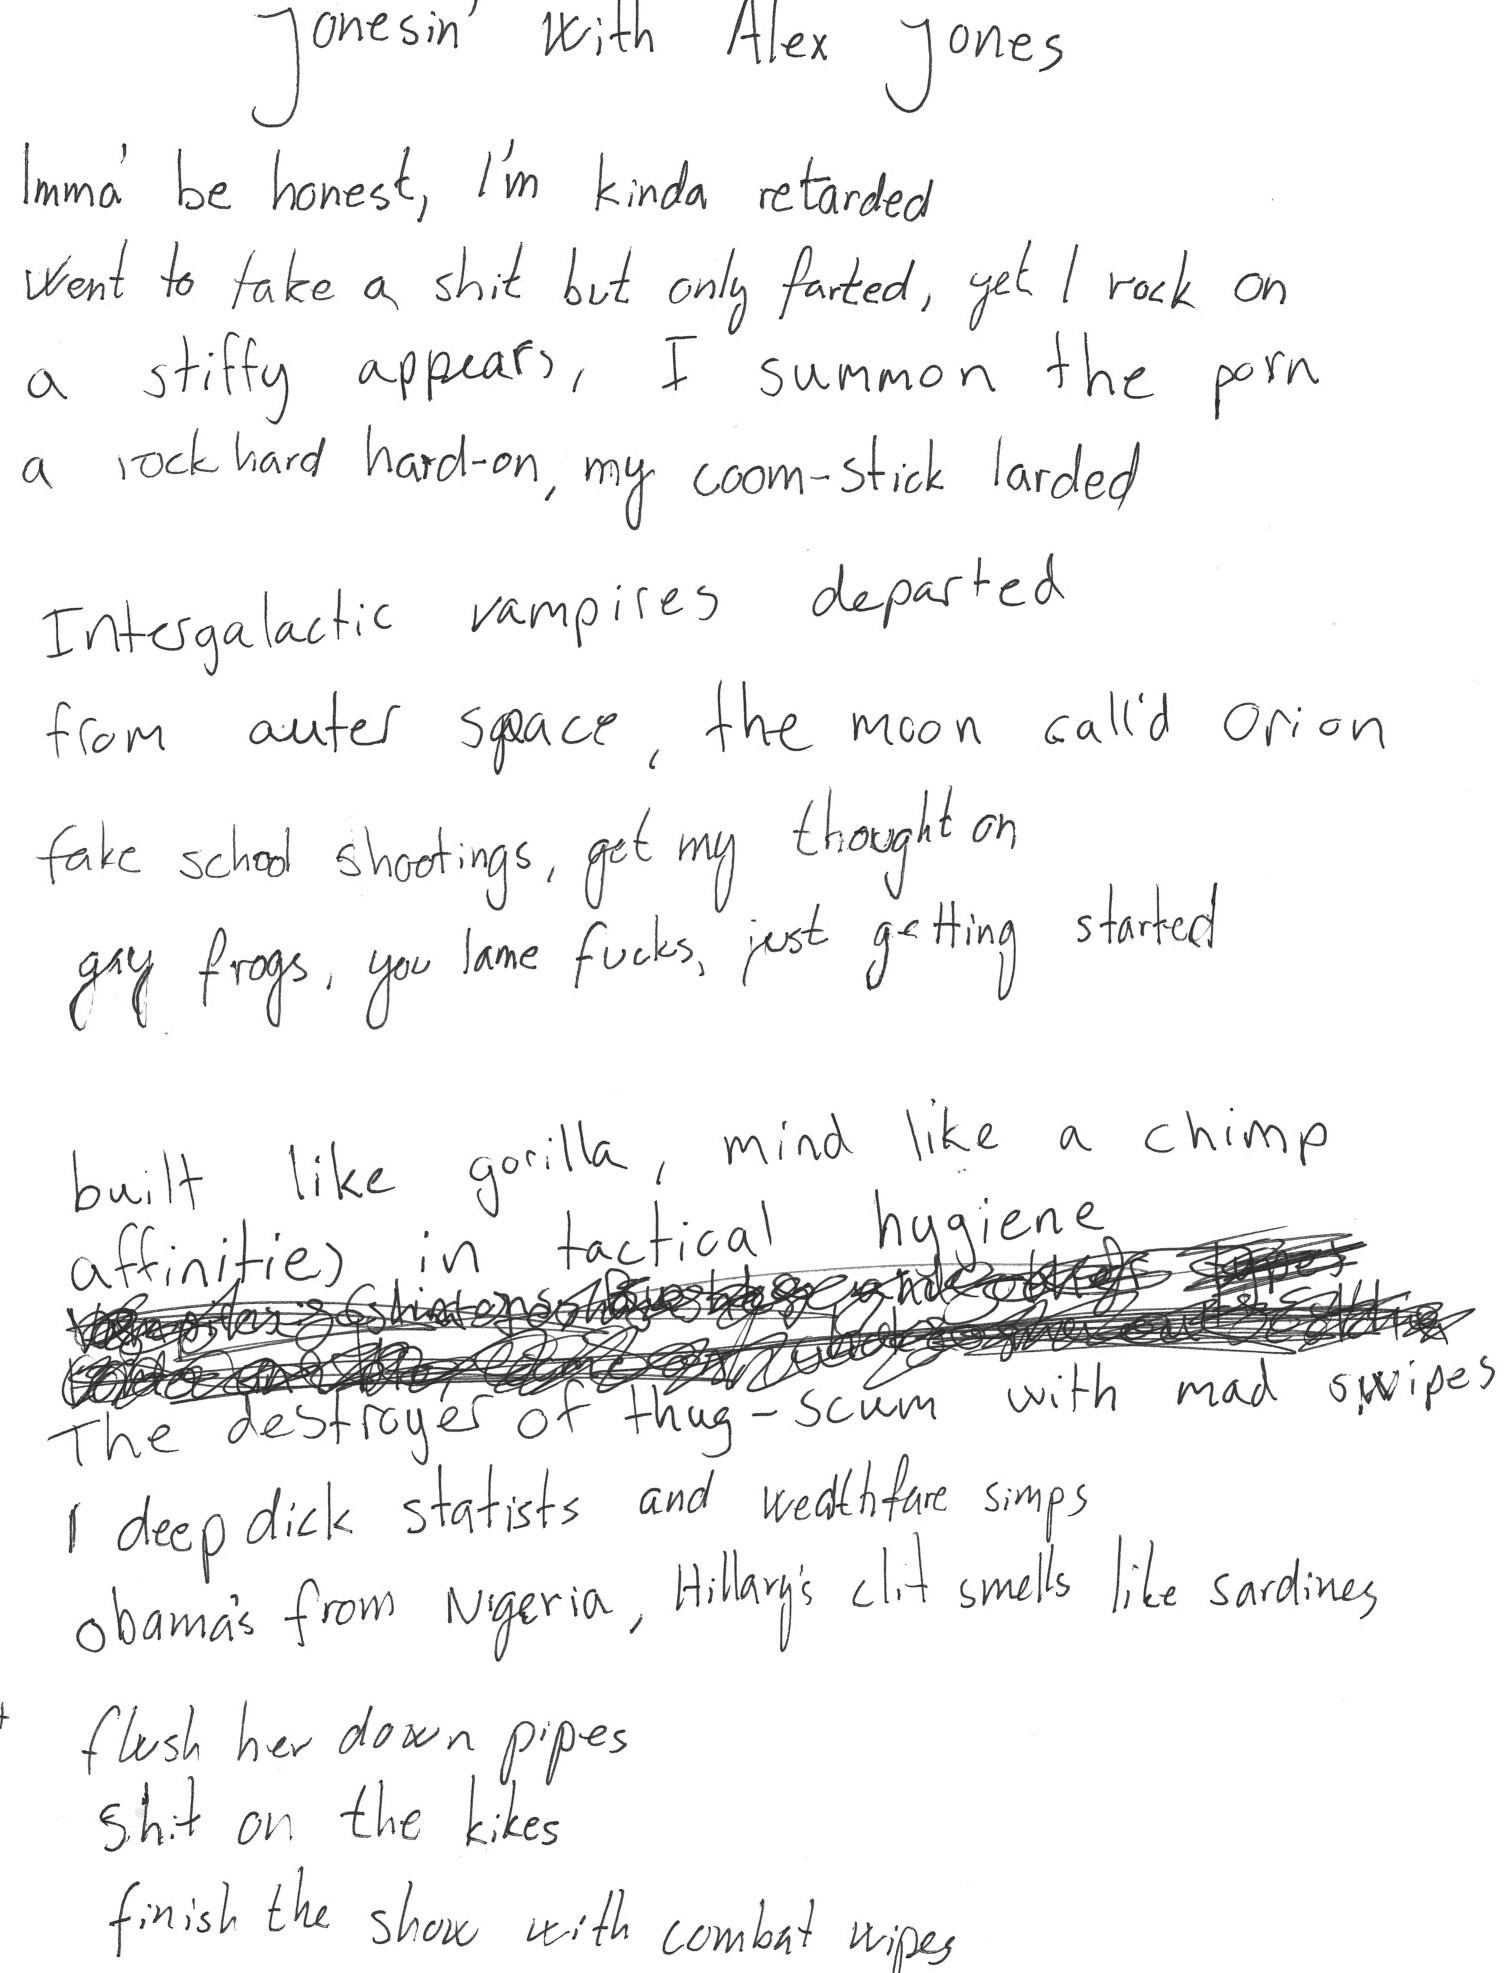 Jonesin' with Alex Jones
Imma' be honest, I'm kinda retarded
Went to take a shit but only farted, yet I rock on
a stiffy appears, I summon the porn
a rock hard hard-on, my coom-stick larded
Intergalactic vampires departed
from outer space, the moon call'd Orion
fake school shootings, get my thought on
gay frogs, you lame fucks, just getting started
built like gorilla, mind like a chimp
affinities in tactical hygiene
The destroyer of thug-scum with mad swipes
I deep dick statists and wealthfare simps
Obama's from Nigeria, Hillary's clit smells like sardines
flush her down pipes
shit on the kikes
finish the show with combat wipes